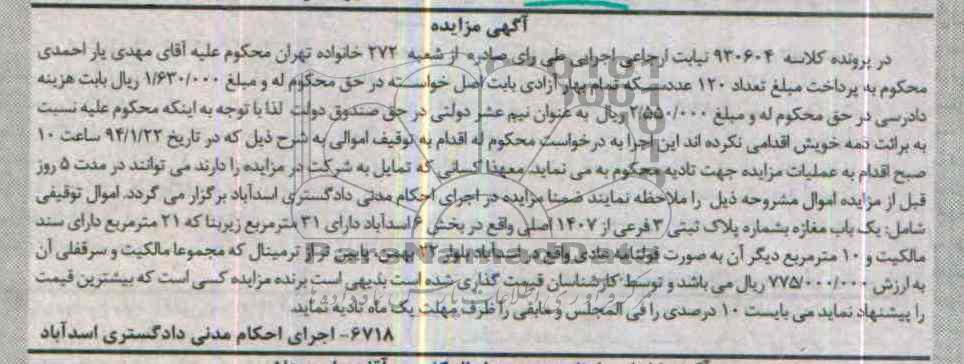 آگهی مزایده
در پرونده کلاسه ۹۳۰۶۰۴ نیابت ارجاعی اجرایی طی رای صادره از شعبه ۲۷۲ خانواده تهران محکوم علیه آقای مهدی یار احمدی
محکوم به پرداخت مبلغ تعداد ۱۲۰ عدد سکه تمام بهار آزادی بابت اصل خواسته در حق محکوم له و مبلغ ۱/۶۳۰/۰۰۰ ریال بابت هزینه
دادرسی در حق محکوم له و مبلغ ۲/۵۵۰/۰۰۰ ریال به عنوان نیم عشر دولتی در حق صندوق دولت لذا با توجه به اینکه محکوم علیه نسبت
به برائت ذمه خویش اقدامی نکرده اند این اجرا به درخواست محکوم له اقدام به توقیف اموالی به شرح ذیل که در تاریخ ۹۴/۱/۲۲ ساعت ۱۰
صبح اقدام به عملیات مزایده جهت تادیه محکوم به می نماید. معهذا کسانی که تمایل به شرکت در مزایده را دارند می توانند در مدت ۵ روز
قبل از مزایده اموال مشروحه ذیل را ملاحظه نمایند ضمنا مزایده در اجرای احکام مدنی دادگستری اسدآباد برگزار می گردد. اموال توقیفی
شامل: یک باب مغازه بشماره پلاک ثبتی ۳ فرعی از ۱۴۰۷ اصلی واقع در بخش ۶ اسدآباد دارای ۳۱ مترمربع زیربنا که ۲۱ مترمربع دارای سند
مالکیت و ۱۰ مترمربع دیگر آن به صورت قولنامه عادی واقع در اسدآباد بلوار ۲۲ بهمن، پایین تر از ترمینال که مجموعا مالکیت و سرقفلی آن
به ارزش ۷۷۵/۰۰۰/۰۰۰ ریال می باشد و توسط کارشناسان قیمت گذاری شده است بدیهی است برنده مزایده کسی است که بیشترین قیمت
را پیشنهاد نماید می بایست ۱۰ درصدی را فی المجلس و مابقی را ظرف مهلت یک ماه تادیه نماید.
۶۷۱۸- اجرای احکام مدنی دادگستری اسدآباد